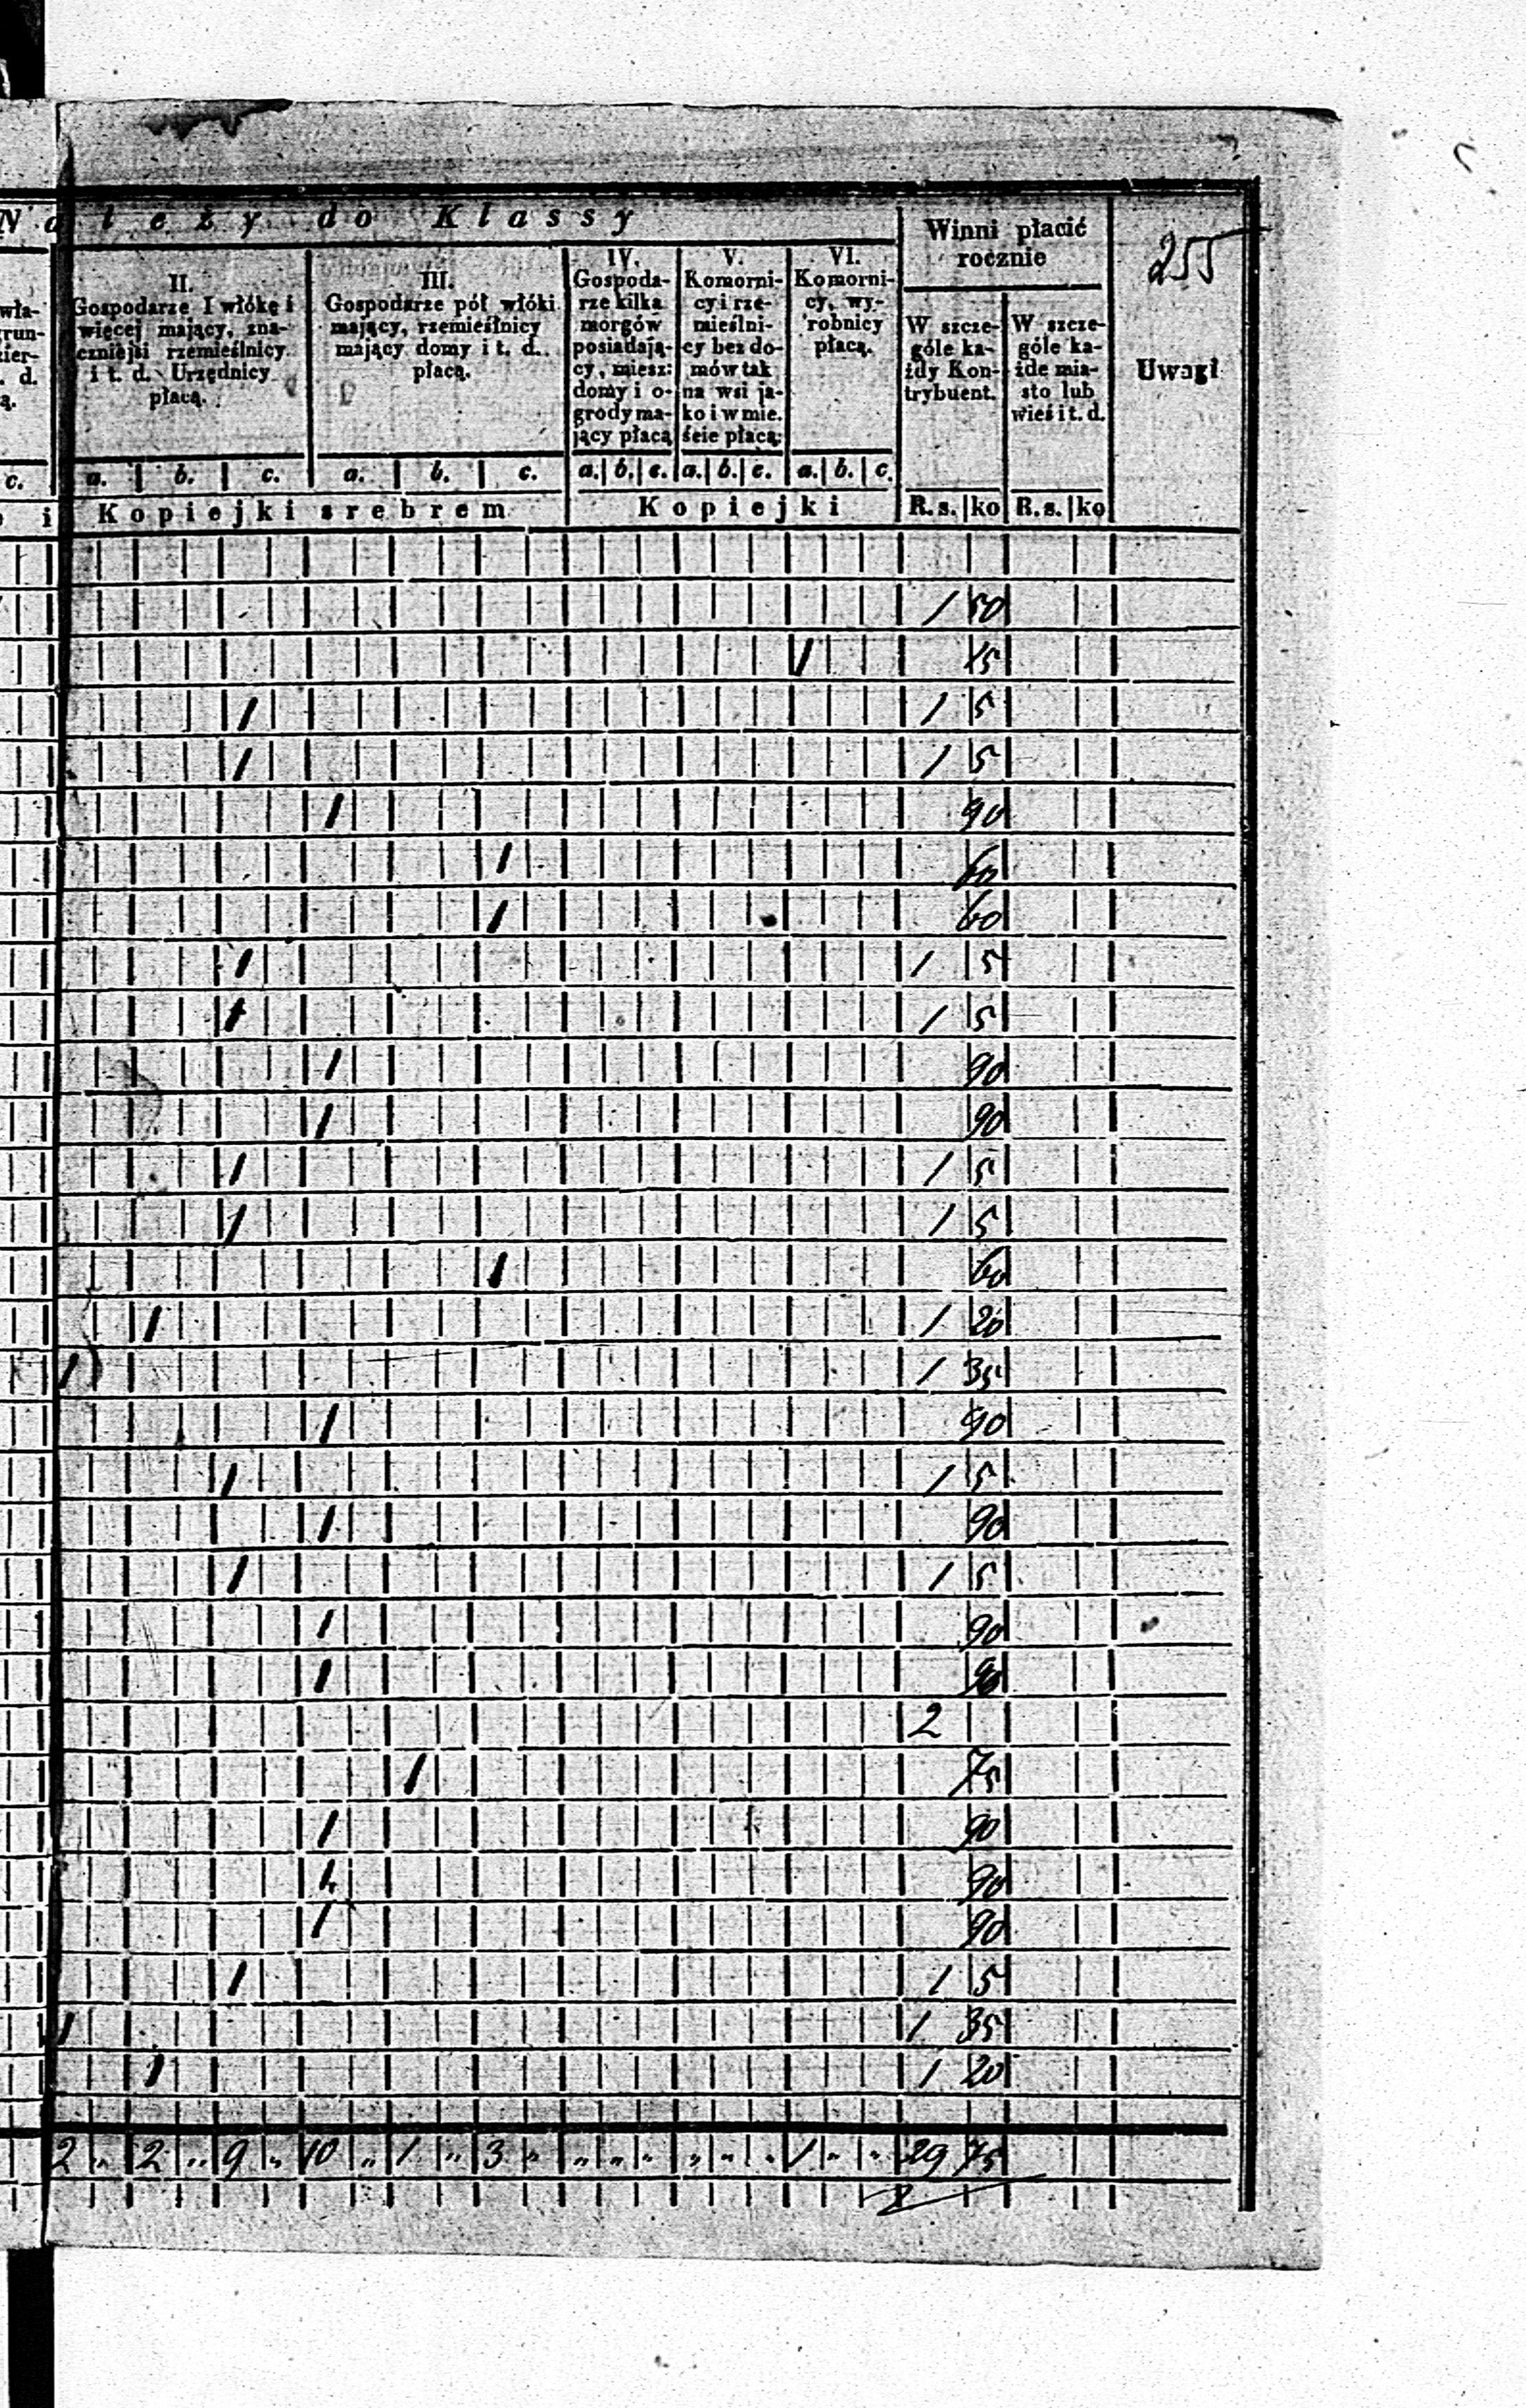 Należy do Klassy
Winni płacić rocznie
255
II.
Gospodarze I włókę i
więcej mający, zna-
czniejsi rzemieślnicy
i t. d. Urzędnicy
płacą.
III.
Gospodarze pół włóki
mający, rzemieślnicy
mający domy i t. d.
płacą.
IV.
Gospoda-
rze kilka
morgów
posiadają-
cy, miesz:
domy i o-
grody ma-
jący płacą
V.
Komorni-
cy i rze-
mieślni-
cy bez do-
mów tak
na wsi ja-
ko i w mie.
ście płacą:
VI.
Komorni-
cy, wy-
robnicy
płacą.
W szcze-
góle ka-
żdy Kon-
trybuent.
W szcze-
góle ka-
żde mia-
sto lub
wieś i t. d.
Uwagi
c. a. b. c. a. b. c. a. b. c. a. b. c. a. b. c.
i Kopiejki srebrem Kopiejki R.s. ko R.s. ko
1 50
1 15
1 1 5
1 1 5
1 90
1 60
1 60
1 1 5
1 1 5
1 90
1 90
1 1 5
1 1 5
1 60
1 1 20
1 1 35
1 90
1 1 5
1 90
1 1 5
1 90
1 90
2
1 75
1 90
1 90
1 90
1 1 5
1 1 35
1 1 20
2 „ 2 „ 9 „ 10 „ 1 „ 3 „ „ „ „ „ „ „ 1 „ „ 29 75